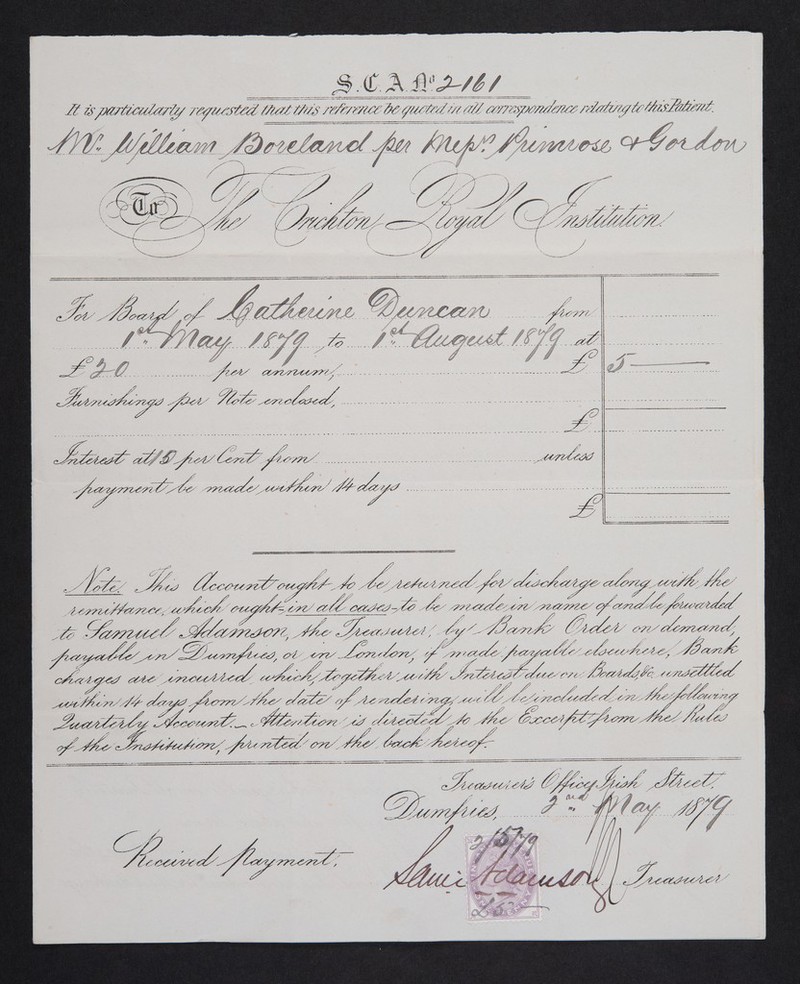 S.C.A. Nº 2161
It is particularly requested that this reference be quoted in all correspondence relating to this Patient.
Mr. William Boreland per Messrs Primrose & Gordon
To The Crichton Royal Institution
For Board of Catherine Duncan from
1st May 1879 to 1st August 1879 at
£20 per annum, £ 5
Furnishings per Note enclosed,
£
Interest at 5 per Cent from unless
payment be made within 14 days
£
Note. This Account ought to be returned for discharge along with the
remittance, which ought-in all cases-to be made in name of and be forwarded
to Samuel Adamson, the Treasurer, by Bank Order on demand,
payable in Dumfries, or in London, if made payable elsewhere, Bank
charges are incurred which, together with Interest due on Boards &c. unsettled
within 14 days from the date of rendering, will be included in the following
Quarterly Account. Attention is directed to the Excerpt from the Rules
of the Institution, printed on the back hereof.
Treasurer's Office, Irish Street,
Dumfries, 2nd May 1879
Received Payment,
2/5/79
Saml Adamson Treasurer